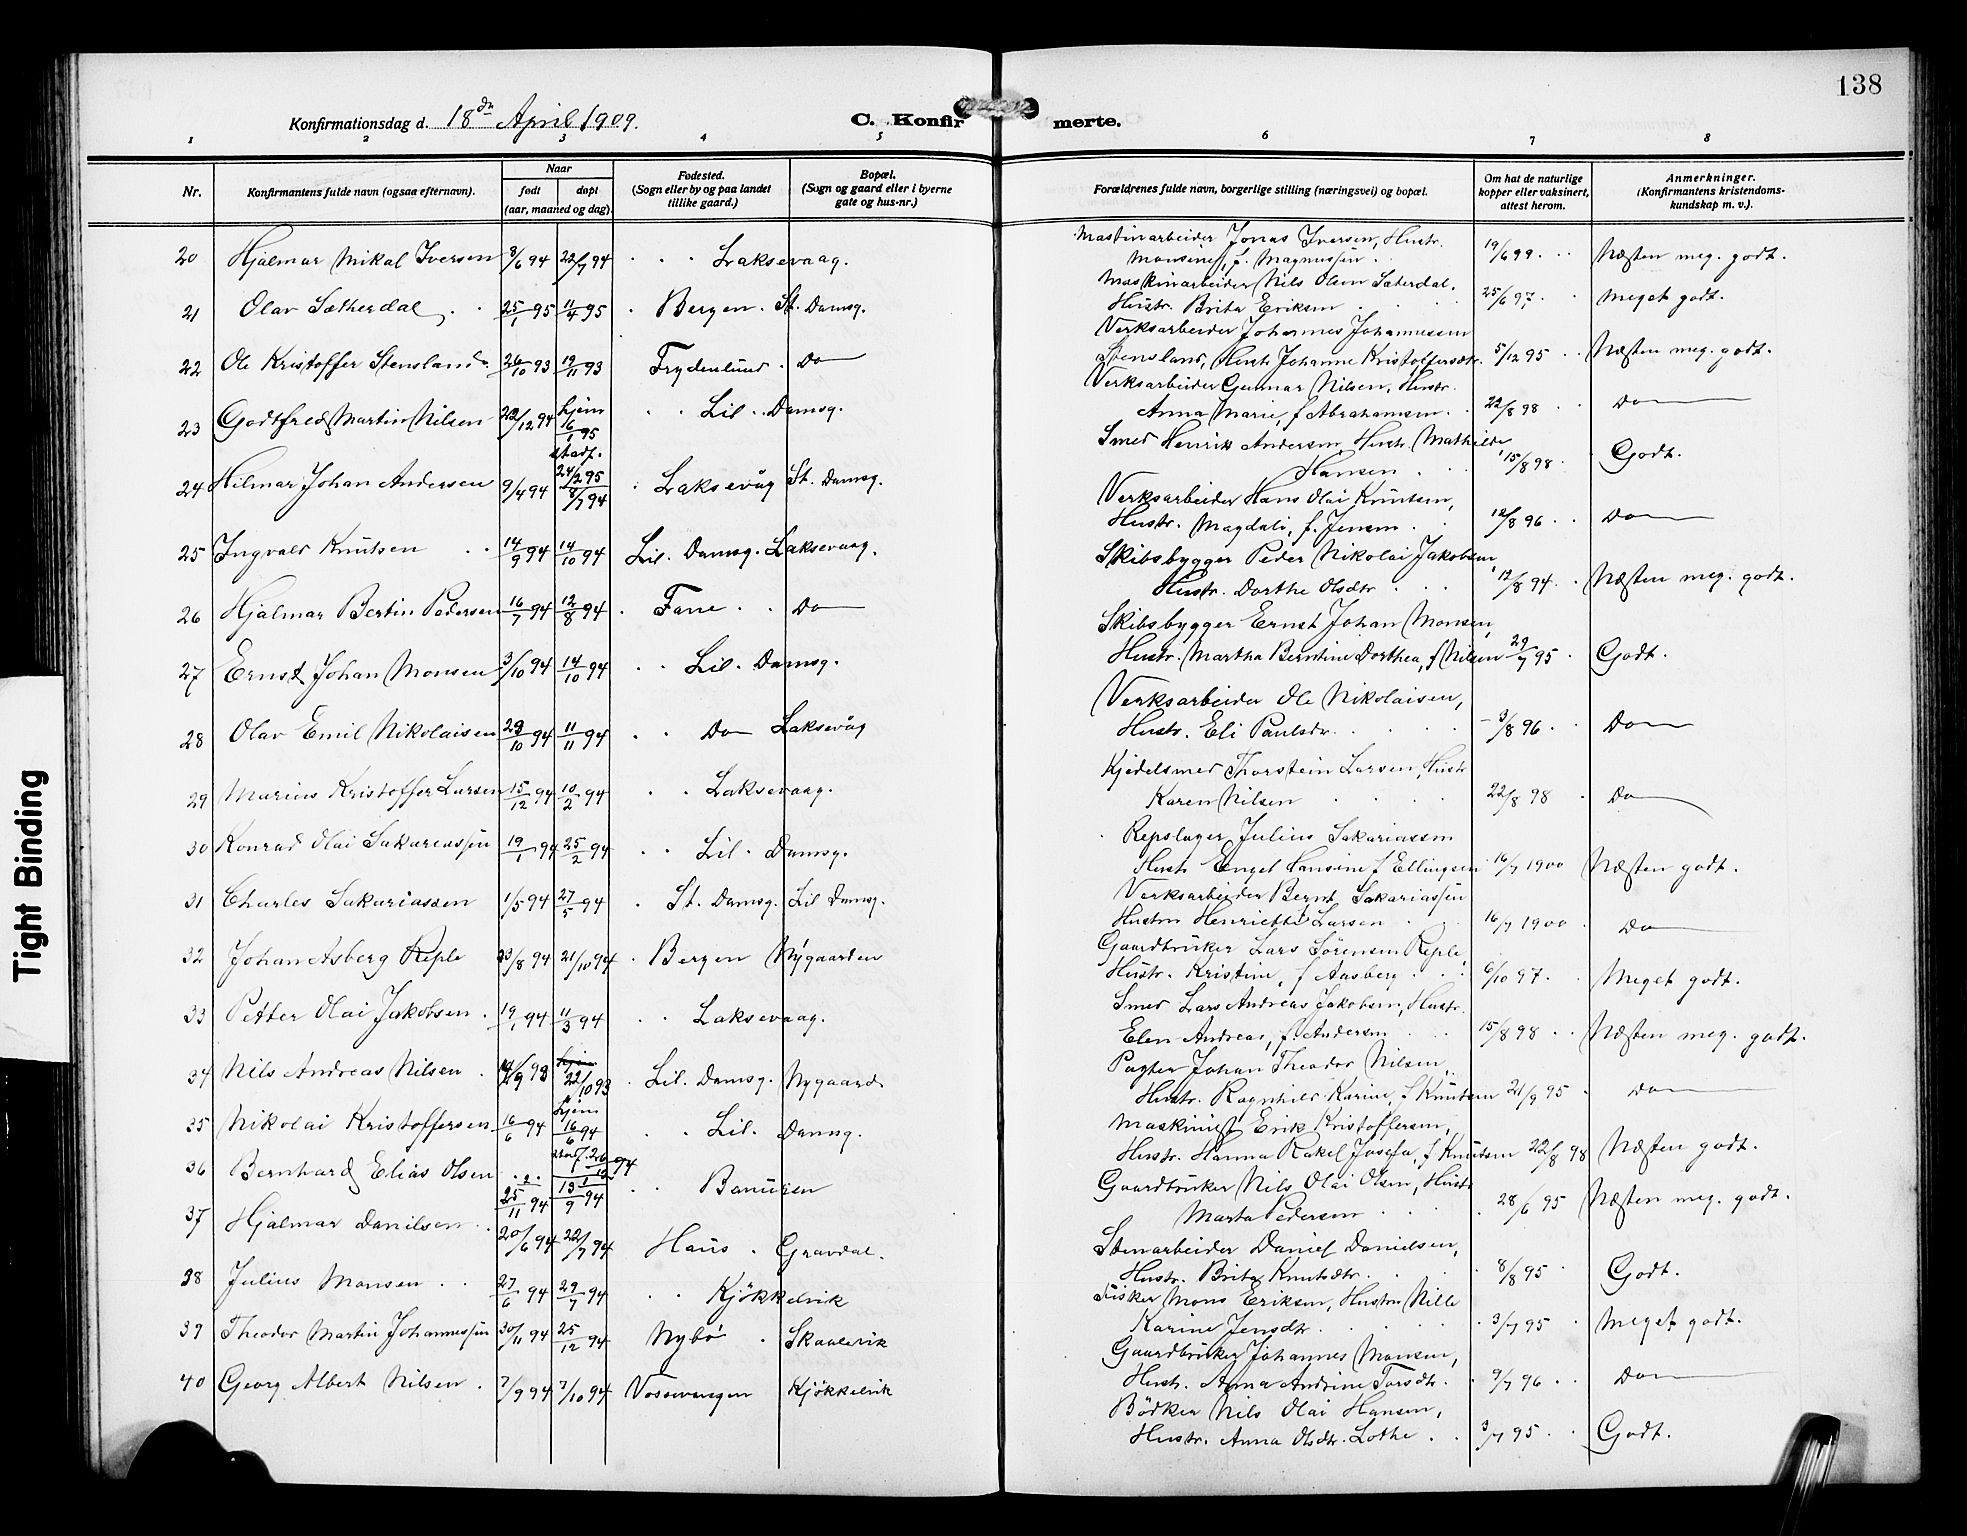 138
Konfirmationsdag d. 18de April 1909.
C. Konfirmerte.
1 2 3 4 5 6 7 8
Nr.
Konfirmantens fulde navn (ogsaa efternavn).
Naar
født døpt
(aar, maaned og dag).
Fødested.
(Sogn eller by og paa landet
tillike gaard.)
Bopæl.
(Sogn og gaard eller i byerne
gate og hus-nr.)
Forældrenes fulde navn, borgerlige stilling (næringsvei) og bopæl.
Om hat de naturlige
kopper eller vaksinert,
attest herom.
Anmerkninger.
(Konfirmantens kristendoms-
kundskap m. v.).
20 Hjalmar Mikal Iversen 8/6 94 22/7 94 Laksevaag.
Maskinarbeider Jonas Iversen, Hustr.
Monsine, f. Magnussen 19/6 99 Næsten meg. godt.
21 Olav Sætherdal 25/1 95 11/4 95 Bergen. St. Damsg.
Maskinarbeider Nils Olsen Sæterdal,
Hustr. Brita Eriksen 25/6 97 Meget godt.
22 Ole Kristoffer Stensland 26/10 93 19/11 93 Frydenlund Do
Verksarbeider Johannes Johannessen
Stensland, Hustr. Johanne Kristoffersdtr. 5/12 95 Næsten meg. godt.
23 Godtfred Martin Nilsen 22/12 94 hjem 16/1 95 stadf. 24/2 95 Lil. Damsg.
Verksarbeider Gunnar Nilsen, Hustr.
Anna Marie, f Abrahamsen 22/8 98 Do
24 Hilmar Johan Andersen 9/4 94 8/7 94 Laksevåg St. Damsg.
Smed Henrik Andersen, Hustr. Mathilde
Hansen 15/8 98 Godt.
25 Ingvald Knutsen 14/9 94 14/10 94 Lil. Damsg. Laksevaag.
Verksarbeider Hans Olai Knutsen,
Hustr. Magdali, f. Jensen 12/8 96 Do
26 Hjalmar Bertin Pedersen 16/7 94 12/8 94 Fane Do
Skibsbygger Peder Nikolai Jakobsen,
Hustr. Dorthe Olsdtr 12/8 94 Næsten meg. godt.
27 Ernst Johan Monsen 3/10 94 14/10 94 Lil. Damsg.
Skibsbygger Ernst Johan Monsen,
Hustr. Martha Berntine Dorthea, f Nilsen 29/7 95 Godt.
28 Olav Emil Nikolaisen 29/10 94 11/11 94 Do Laksevåg
Verksarbeider Ole Nikolaisen,
Hustr. Eli Paulsdtr. 3/8 96 Do
29 Marius Kristoffer Larsen 15/12 94 10/2 94 Laksevaag.
Kjedelsmed Thorstein Larsen, Hustr
Karen Nilsen 22/8 98 Do
30 Konrad Olai Sakariassen 19/1 94 25/2 94 Lil. Damsg.
Repslager Julius Sakariassen
Hustr Engel Hansine f Ellingsen 16/7 1900 Næsten godt.
31 Charles Sakariassen 1/5 94 27/5 94 St. Damsg. Lil Damsg.
Verksarbeider Bernt Sakariassen
Hustru Henriette Larsen 16/7 1900 Do
32 Johan Asberg Reple 23/8 94 21/10 94 Bergen Nygaarden
Gaardbruker Lars Sørensen Reple,
Hustr. Kristine, f Aasberg 6/10 97 Meget godt.
33 Petter Olai Jakobsen 19/1 94 11/3 94 Laksevaag.
Smed Lars Andreas Jakobsen, Hustr.
Elen Andrea, f. Andersen 15/8 98 Næsten meg. godt.
34 Nils Andreas Nilsen 14/9 93 22/10 93 Lil. Damsg. Nygaard
Pagter Johan Theodor Nilsen,
Hustr. Ragnhild Karine, f Knutsen 21/9 95 Do
35 Nikolai Kristoffersen 16/6 94 hjem 16/6 94 stadf. 26/12 94 Lil. Damsg.
Maskinist Erik Kristoffersen,
Hustr. Hanna Rakel Josefa, f Knutsen 22/8 98 Næsten godt.
36 Bernhard Elias Olsen 25/11 94 Banuren
Gaardbruker Nils Olai Olsen, Hustr
Marta Pedersen 28/6 95 Næsten meg. godt.
37 Hjalmar Danilsen 20/6 94 22/7 94 Haus Gravdal.
Stenarbeider Daniel Danielsen,
Hustr. Brita Knutsdtr. 8/8 95 Godt.
38 Julius Monsen 27/6 94 29/7 94 Kjøkkelvik
Fisker Mons Eriksen, Hustru Nille
Karine Jensdtr. 3/7 95 Meget godt.
39 Theodor Martin Johannessen 30/11 94 25/12 94 Nybø Skaalevik
Gaardbruker Johannes Monsen,
Hustr. Anna Andrine Torsdtr. 9/7 96 Do
40 Georg Albert Nilsen 7/9 94 7/10 94 Vossevangen Kjøkkelvik
Bødker Nils Olai Hansen,
Hustr. Anna Olsdtr. Lothe 3/7 95 Godt.
Tight Binding